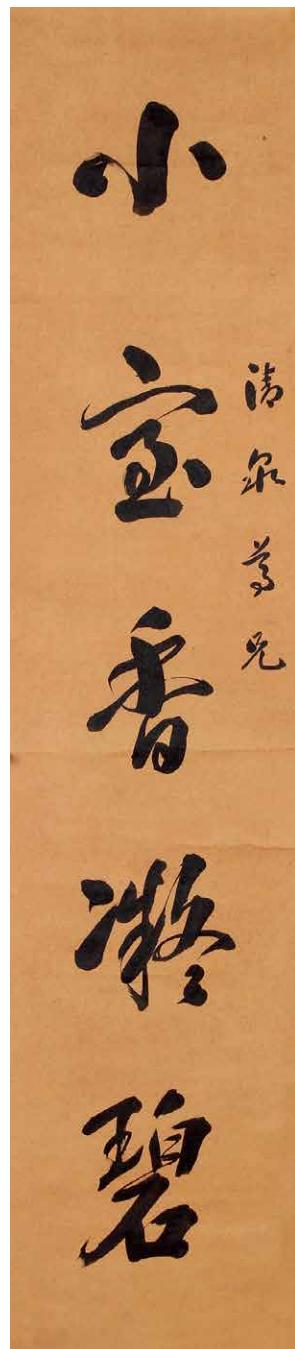 清泉尊兄
小室香凝碧